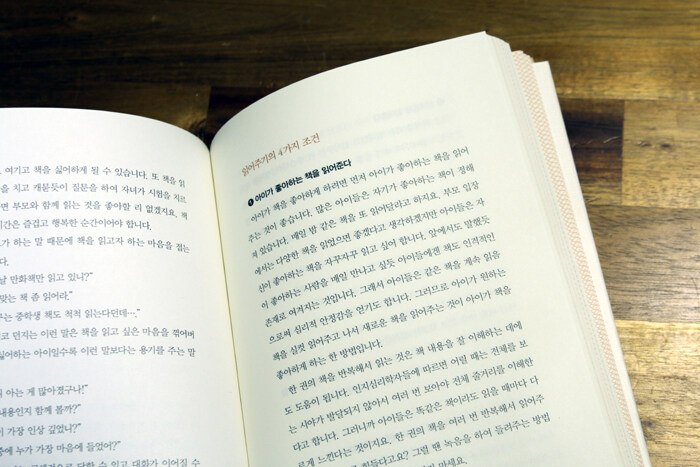 여기고 책을 싫어하게 될 수 있습니다. 또 책을 읽
을 치고 캐묻듯이 질문을 하여 자녀가 시험을 치르
면 부모와 함께 읽는 것을 좋아할 리 없겠지요. 책
시간은 즐겁고 행복한 순간이어야 합니다.
가 하는 말 때문에 책을 읽고자 하는 마음을 접는
다.
날 만화책만 읽고 있니?”
맞는 책 좀 읽어라.”
는 중학생 책도 척척 읽는다던데…,”
고 던지는 이런 말은 책을 읽고 싶은 마음을 꺾어버
싫어하는 아이일수록 이런 말보다는 용기를 주는 말
아는 게 많아졌구나!”
내용인지 함께 볼까?”
가장 인상 깊었니?”
중에 누가 가장 마음에 들었어?”
답할 수 있고 대화가 이어질 수
읽어주기의 4가지 조건
❶ 아이가 좋아하는 책을 읽어준다
아이가 책을 좋아하게 하려면 먼저 아이가 좋아하는 책을 읽어
주는 것이 좋습니다. 많은 아이들은 자기가 좋아하는 책이 정해
져 있습니다. 매일 밤 같은 책을 또 읽어달라고 하지요. 부모 입장
에서는 다양한 책을 읽었으면 좋겠다고 생각하겠지만 아이들은 자
신이 좋아하는 책을 자꾸자꾸 읽고 싶어 합니다. 앞에서도 말했듯
이 좋아하는 사람을 매일 만나고 싶듯 아이들에겐 책도 인격적인
존재로 여겨지는 것입니다. 그래서 아이들은 같은 책을 계속 읽음
으로써 심리적 안정감을 얻기도 합니다. 그러므로 아이가 원하는
책을 실컷 읽어주고 나서 새로운 책을 읽어주는 것이 아이가 책을
좋아하게 하는 한 방법입니다.
한 권의 책을 반복해서 읽는 것은 책 내용을 잘 이해하는 데에
도 도움이 됩니다. 인지심리학자들에 따르면 어릴 때는 전체를 보
는 시야가 발달되지 않아서 여러 번 보아야 전체 줄거리를 이해한
다고 합니다. 그러니까 아이들은 똑같은 책이라도 읽을 때마다 다
르게 느낀다는 것이지요. 한 권의 책을 여러 번 반복해서 읽어주
힘들다고요? 그럴 땐 녹음을 하여 들려주는 방법
마세요.